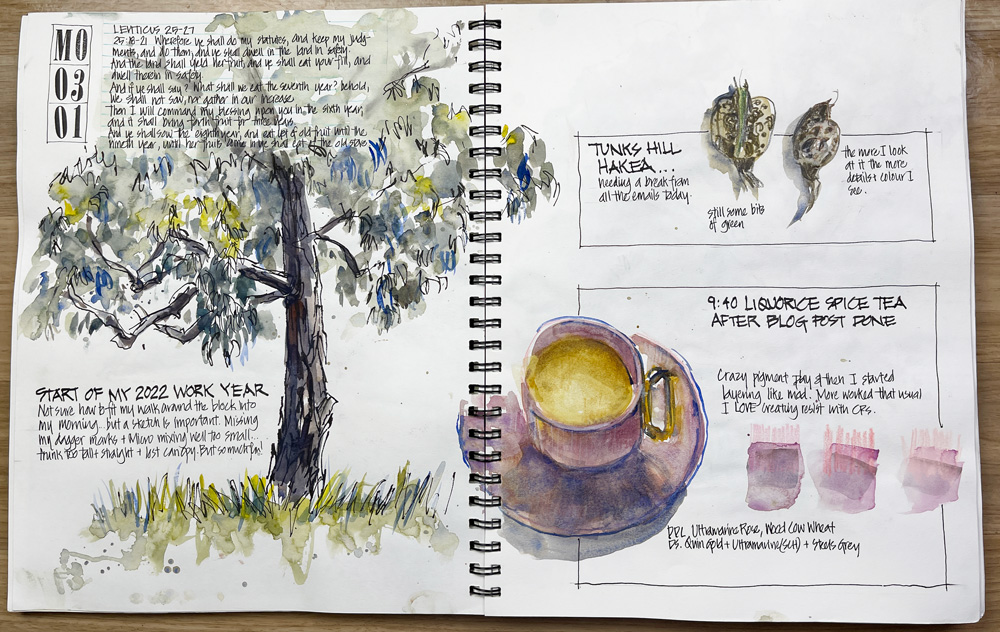 MO
03
01
LEVITICUS 25-27
25:18-21 Wherefore ye shall do my statutes, and keep my judg-
ments, and do them; and ye shall dwell in the land in safety.
And the land shall yield her fruit, and ye shall eat your fill, and
dwell therein in safety.
And if ye shall say? What shall we eat the seventh year? behold,
we shall not sow, nor gather in our increase
Then I will command my blessing upon you in the sixth year,
and it shall bring forth fruit for three years.
And ye shall sow the eighth year, and eat yet of old fruit until the
nineth year, until her fruits come in ye shall eat of the old store
START OF MY 2022 WORK YEAR
Not sure how to fit my walk around the block into
my morning... but a sketch is important. Missing
my dagger marks + Micro mixing well too small...
trunk too tall + straight + lost canopy. But so much fun!
TUNKS HILL
HAKEA...
needing a break from
all the emails today.
still some bits
of green
the more I look
at it the more
details + colour I
see.
9:40 LIQUORICE SPICE TEA
AFTER BLOG POST DONE
Crazy pigment play & then I started
layering like mad. More worked that usual
I LOVE creating resist with CPs.
PPL Ultramarine Rose, Wheat
DS. Quin gold + Ultramarine (SCH) + Grey